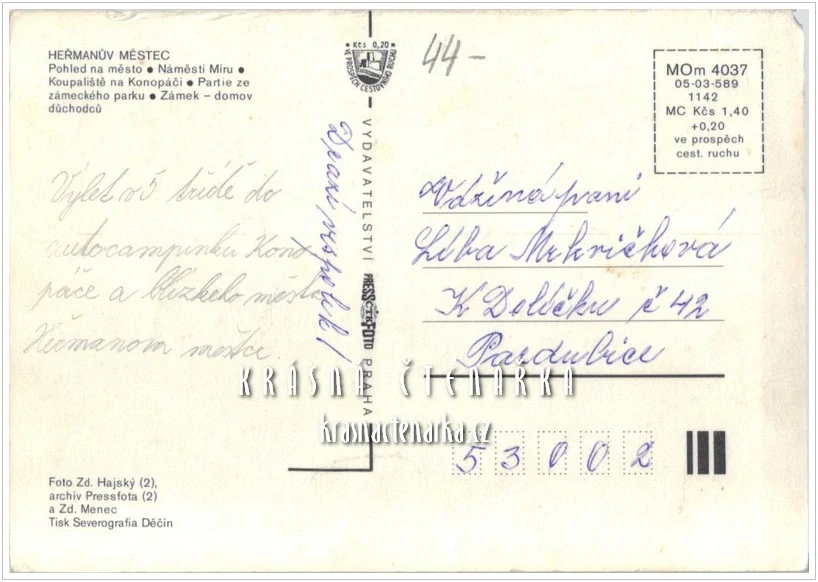 HEŘMANŮV MĚSTEC
Pohled na město ● Náměstí Míru ●
Koupaliště na Konopáči ● Partie ze
zámeckého parku ● Zámek – domov
důchodců
Výlet v 5 třídě do
autocampinku Kono
páče a blízkého města
Heřmanova městce.
Foto Zd. Hajský (2),
archiv Pressfota (2)
a Zd. Menec
Tisk Severografia Děčín
Kčs 0,20
VE PROSPĚCH CESTOVNÍHO RUCHU
VYDAVATELSTVÍ PRESSFOTO PRAHA
ČTK
44-
MOm 4037
05-03-589
1142
MC Kčs 1,40
+0,20
ve prospěch
cest. ruchu
Vážená paní
Liba Mrkvičková
K Dolíčku č 42
Pardubice
53002
KRÁSNÁ ČTENÁRKA
krasnactenarka.cz